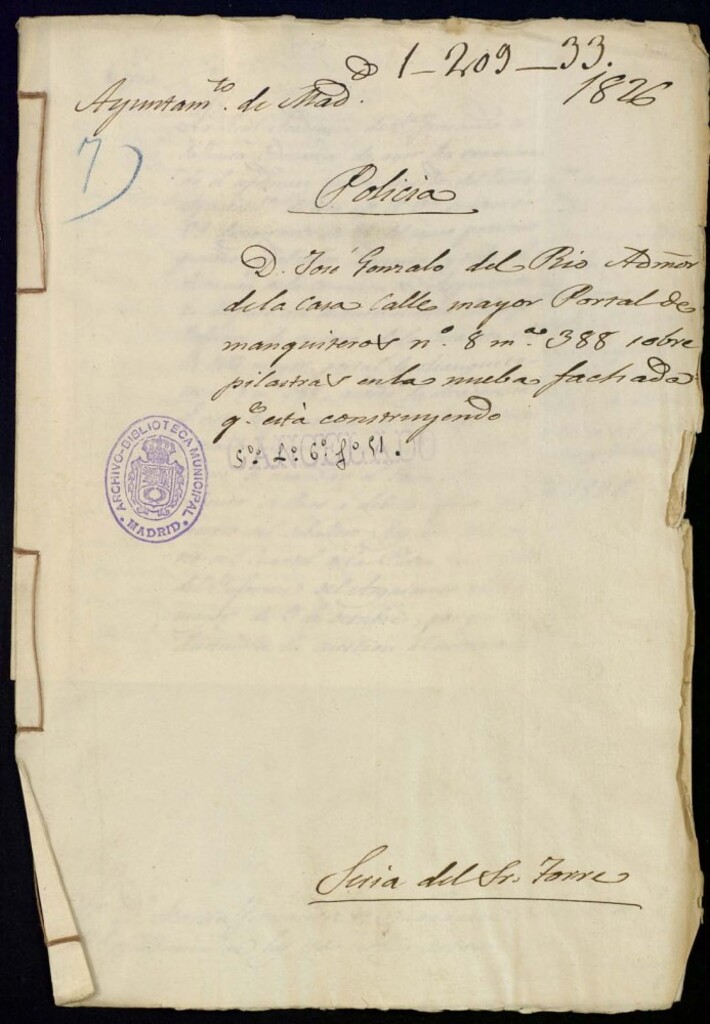 1-209-33.
Ayuntam.to de Mad.d 1826
7)
Policia
D. José Gonzalo del Rio Admor
de la casa calle mayor Portal de
manguiteros nº. 8 m.na 388 sobre
pilastras en la nueba fachada
q.e está construyendo
Sria del Sr. Torre
ARCHIVO-BIBLIOTECA MUNICIPAL
MADRID